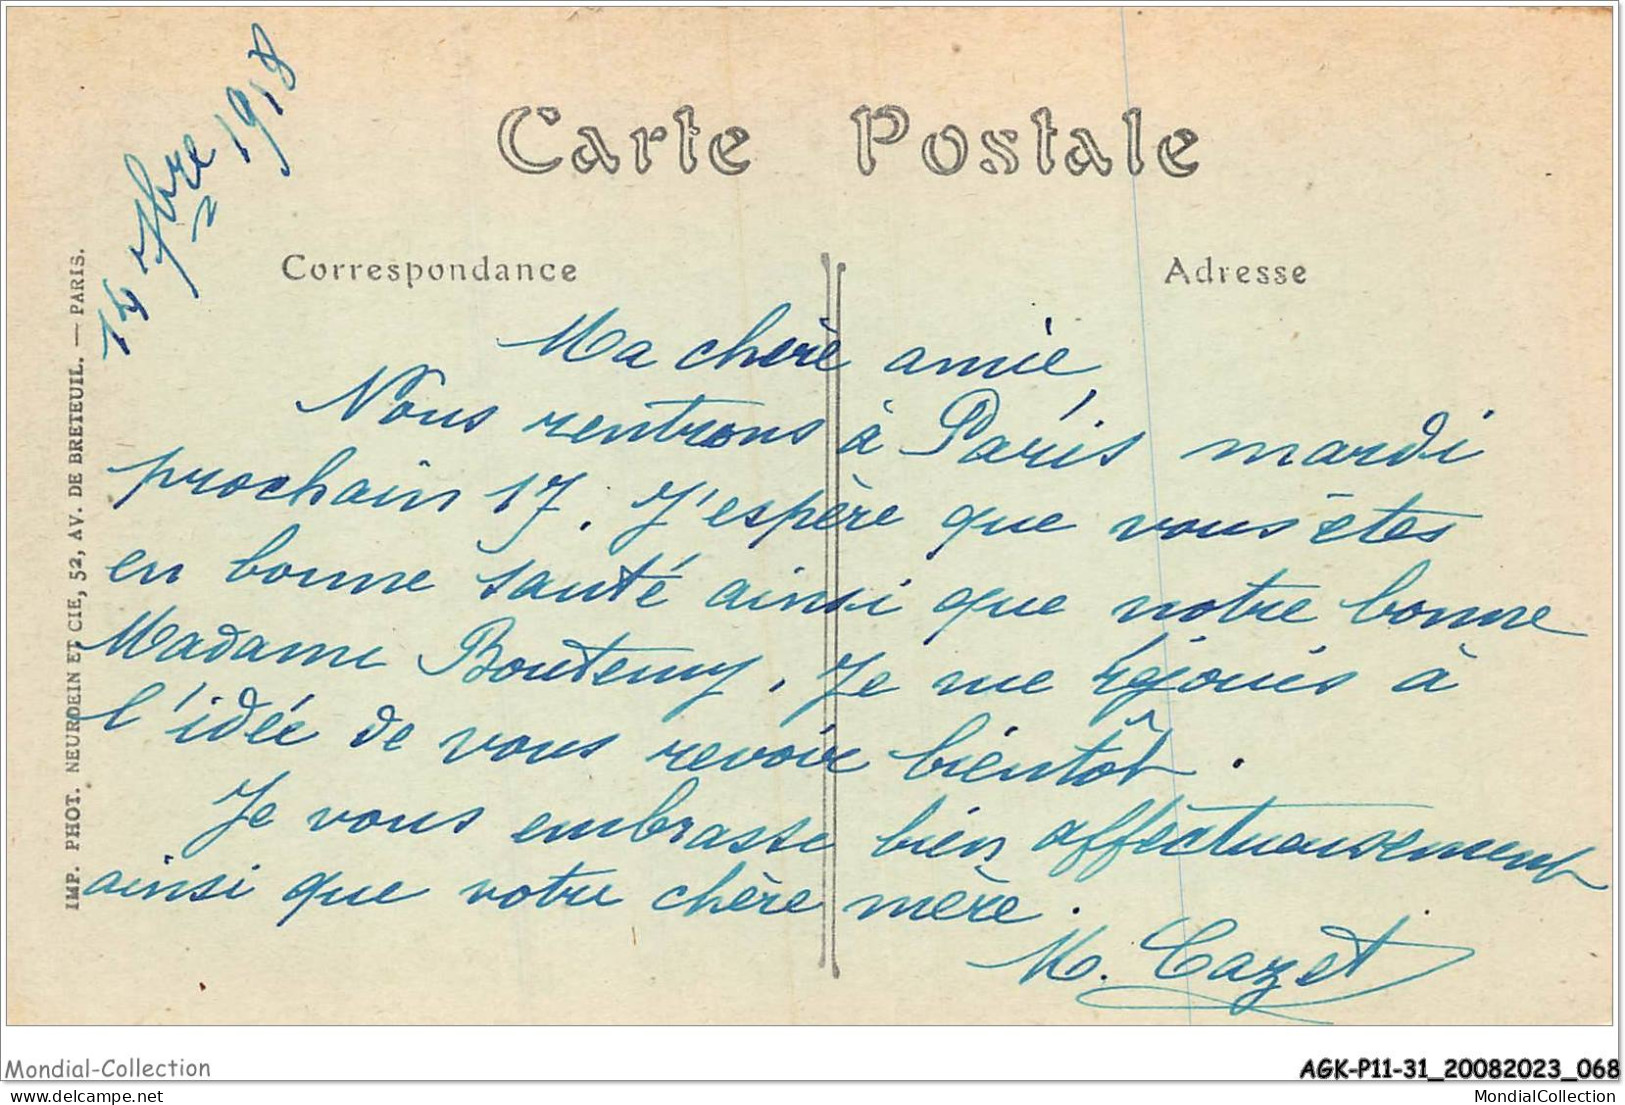 14 7bre 1918
Carte Postale
Correspondance
Adresse
IMP. PHOT. NEURDEIN ET CIE, 52, AV. DE BRETEUIL. — PARIS.
Ma chère amie,
Nous rentrons à Paris mardi
prochain 17. J'espère que vous êtes
en bonne santé ainsi que notre bonne
Madame Boutemy. Je me réjouis à
l'idée de vous revoir bientôt.
Je vous embrasse bien affectueusement
ainsi que votre chère mère.
M. Cazet
Mondial-Collection
AGK-P11-31_20082023_068
delcampe.net
MondialCollection